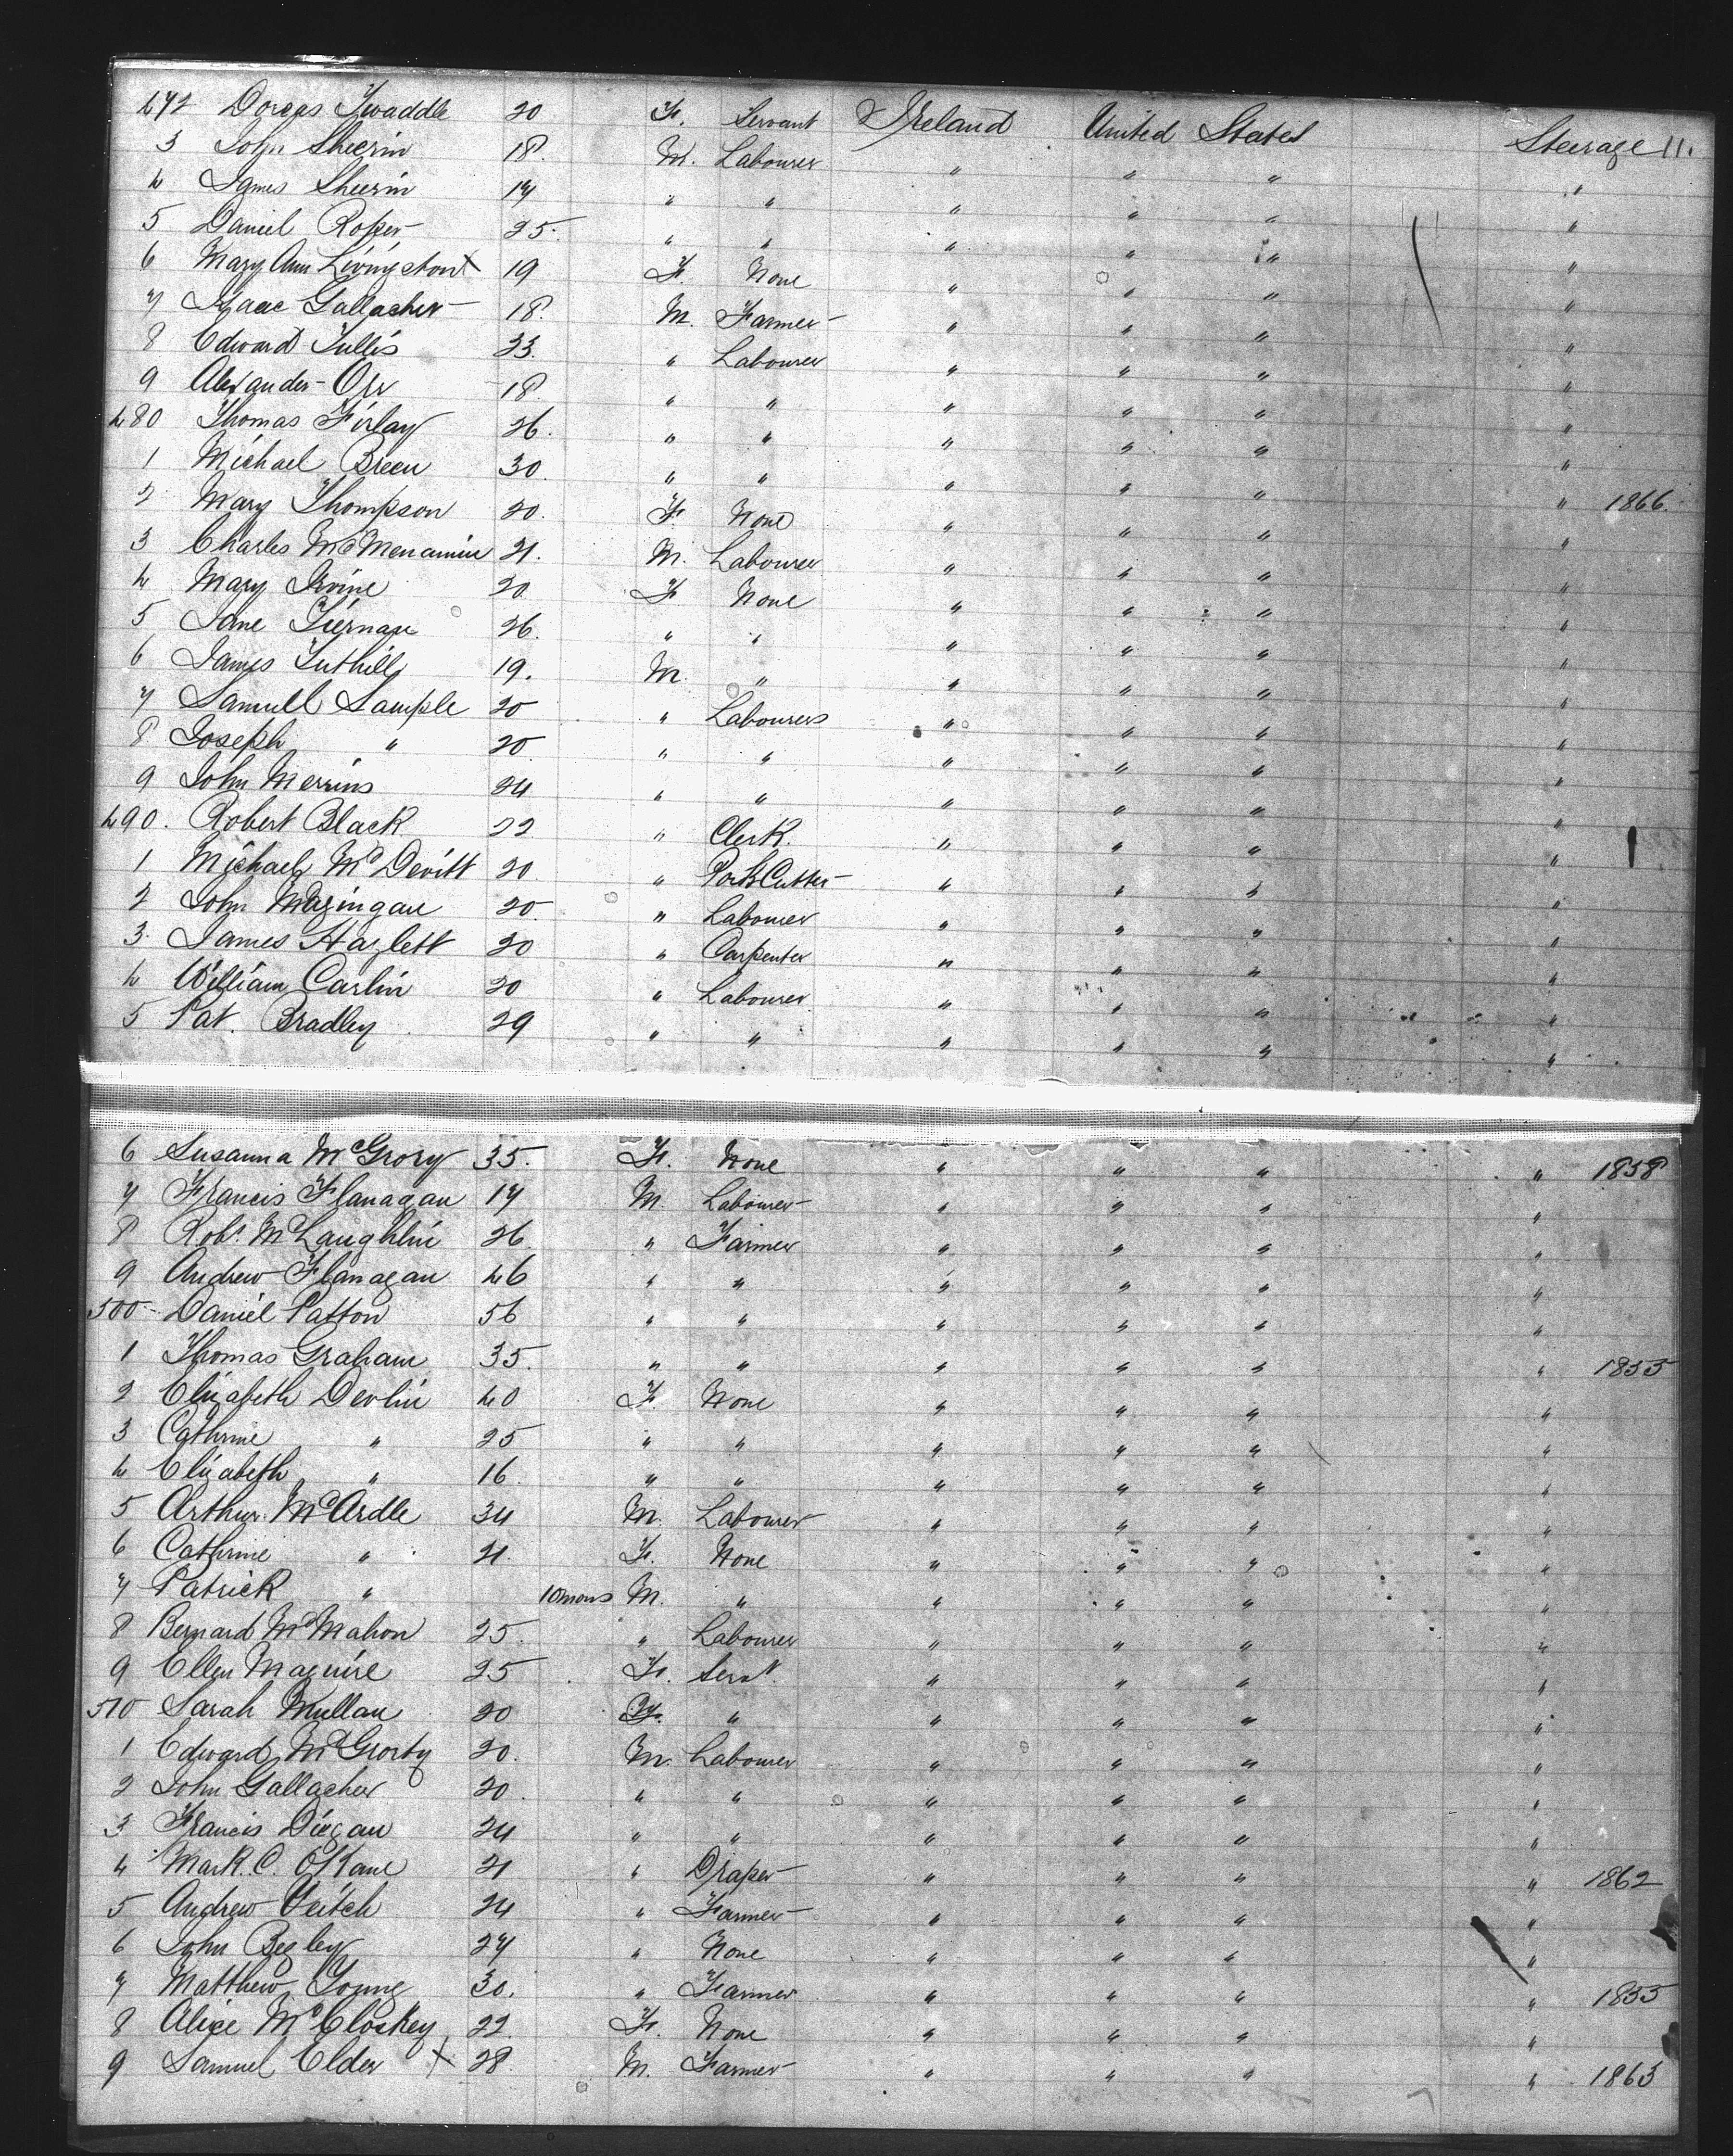 472 Dorcas Twaddle 20 F. Servant Ireland United States Steerage 11.
3 John Sheerin 18. M. Labourer " " " "
4 James Sheerin 17 " " " " " "
5 Daniel Roper 25. " " " " " "
6 Mary Ann Livingston X 19 F. None " " " "
7 Isaac Gallacher 18. M. Farmer " " " "
8 Edward Tullis 23. " Labourer " " " "
9 Alexander Orr 18. " " " " " "
480 Thomas Firlay 26. " " " " " "
1 Michael Breen 30. " " " " " "
2 Mary Thompson 20. F. None " " " " 1866.
3 Charles McMenamin 21. M. Labourer " " " "
4 Mary Irvine 20 F None " " " "
5 Jane Tiernan 26. " " " " " "
6 James Tuthill 19. M. " " " " "
7 Samuell Sample 20 " Labourers " " " "
8 Joseph " 20 " " " " " "
9 John Merrins 24 " " " " " "
490. Robert Black 22 " Clerk. " " " "
1 Michael McDevitt 20. " Pork Cutter " " " "
2 John 20. " Labourer " " " "
3. James Hazlett 20 " Carpenter " " " "
4 William Carlin 20 " Labourer " " " "
5 Pat. Bradley 29 " " " " " "
6 Susanna McGrory 35. F. None " " " " 1858
7 Francis Flanagan 17 M. Labourer " " " "
8 Robt McLaughlin 26. " Farmer " " " "
9 Andrew Flanagan 46 " " " " " "
500 Daniel Patton 56 " " " " " "
1 Thomas Graham 35. " " " " " " 1855
2 Elizabeth Devlin 40 F. None " " " "
3 Cathrine " 25 " " " " " "
4 Elizabeth " 16. " " " " " "
5 Arthur McArdle 34 M. Labourer " " " "
6 Cathrine " 21. F. None " " " "
7 Patrick " 10 mons M. " " " " "
8 Bernard McMahon 25. " Labourer " " " "
9 Ellen Maguire 25 F. Servt. " " " "
510 Sarah Mullan 20 F. " " " " "
1 Edward McGrorty 20. M. Labourer " " " "
2 John Gallacher 20. " " " " " "
3 Francis Diegan 24 " " " " " "
4 Mark. C. O'Kane 21 " Draper " " " " 1862
5 Andrew Veitch 24 " Farmer " " " "
6 John Begley 27 " None " " " "
7 Matthew Young 30. " Farmer " " " " 1855
8 Alice McCloskey 22. F. None " " " "
9 Samuel Elder X 28. M. Farmer " " " " 1863